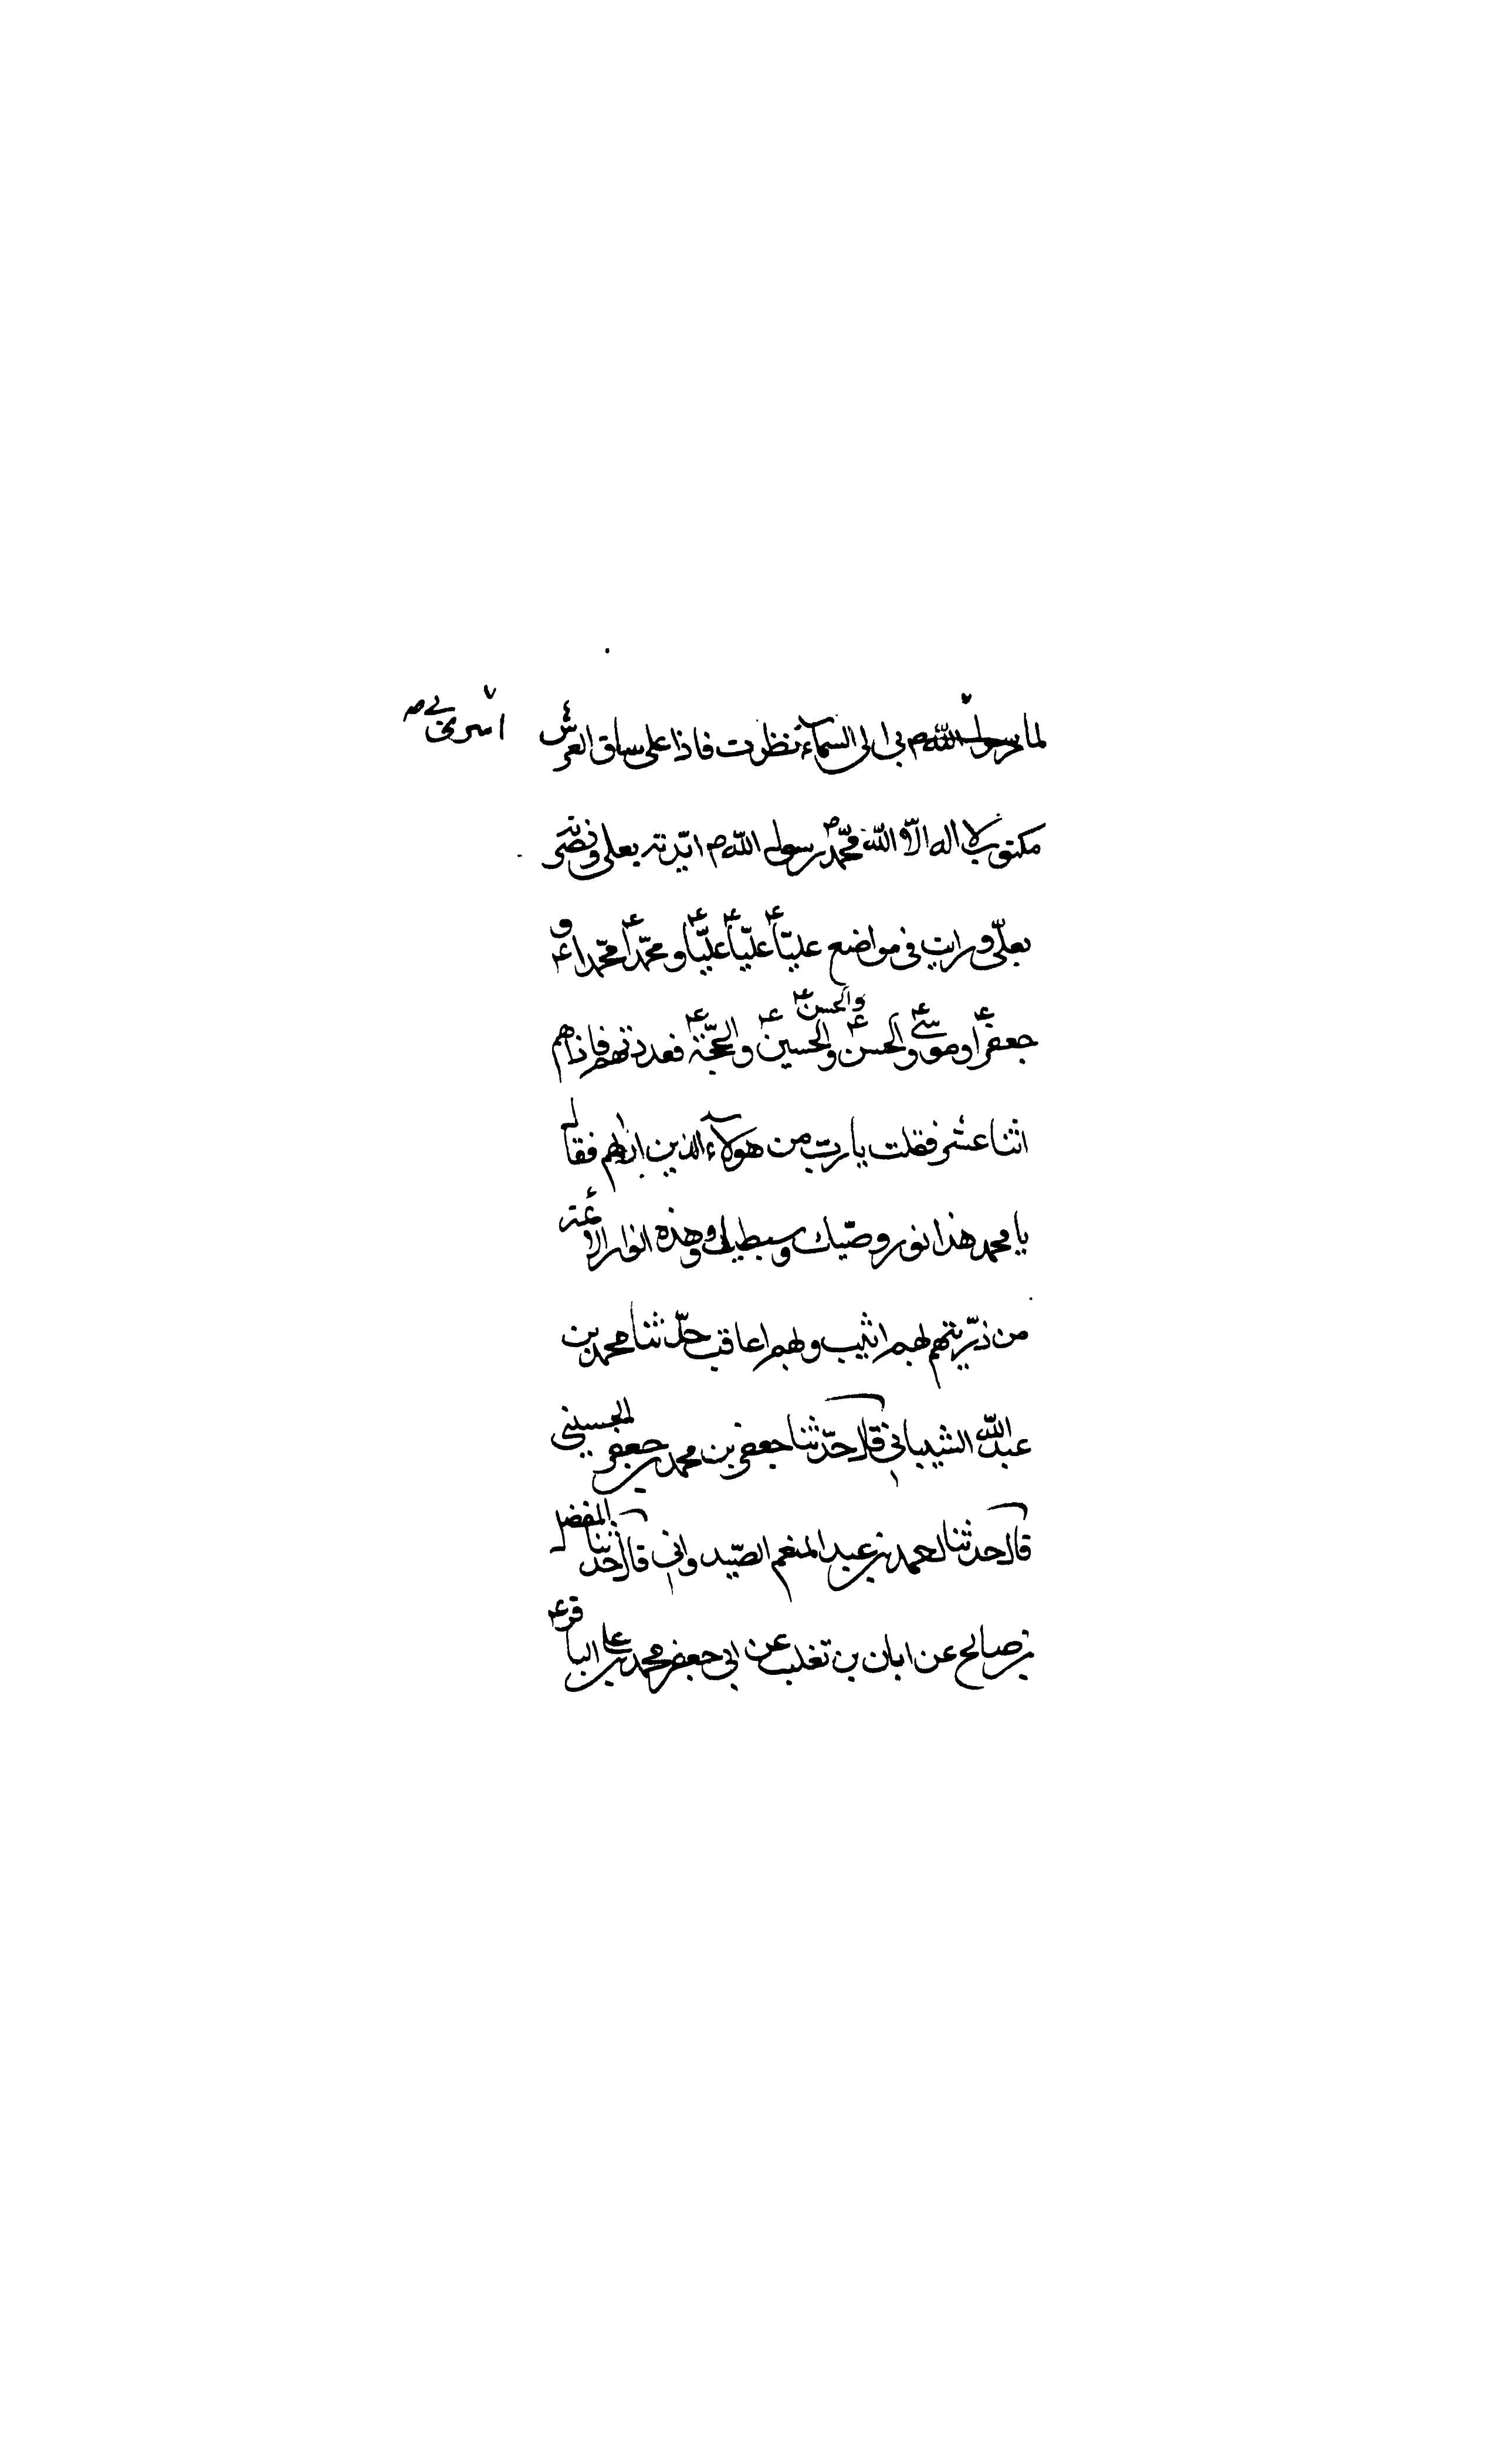 لما رسول الله ص بي الى السماء نظرت فاذا على ساق العرش
اسرى بي ص
مكتوب لا اله الا الله محمد ص رسول الله ص ايدته بعلي ونصرته
بعليّ ورايت في مواضع عليّاً ع عليّاً ع عليّاً ع ومحمّداً ع محمّدا ع و
جعفراً ع وموسى ع والحسن ع والحسن ع والحسين ع والحجّة ع فعددتهم فاذا هم
اثنا عشر فقلت يا ربّ من هولاء الذين اراهم فقال
يا محمد هذا نور وصيّك وسبطيك وهذه انوار الائمة
من ذرّيتهم بهم اثيب وبهم اعاقب حدّثنا محمد بن
عبد الله الشيباني قال حدّثنا جعفر بن محمد بن جعفر الحسيني
قال حدثنا احمد بن عبد المنعم الصيداوني قال حدثنا المفضل
بن صالح عن ابان بن تغلب عن ابي جعفر محمد بن علي الباقر ع